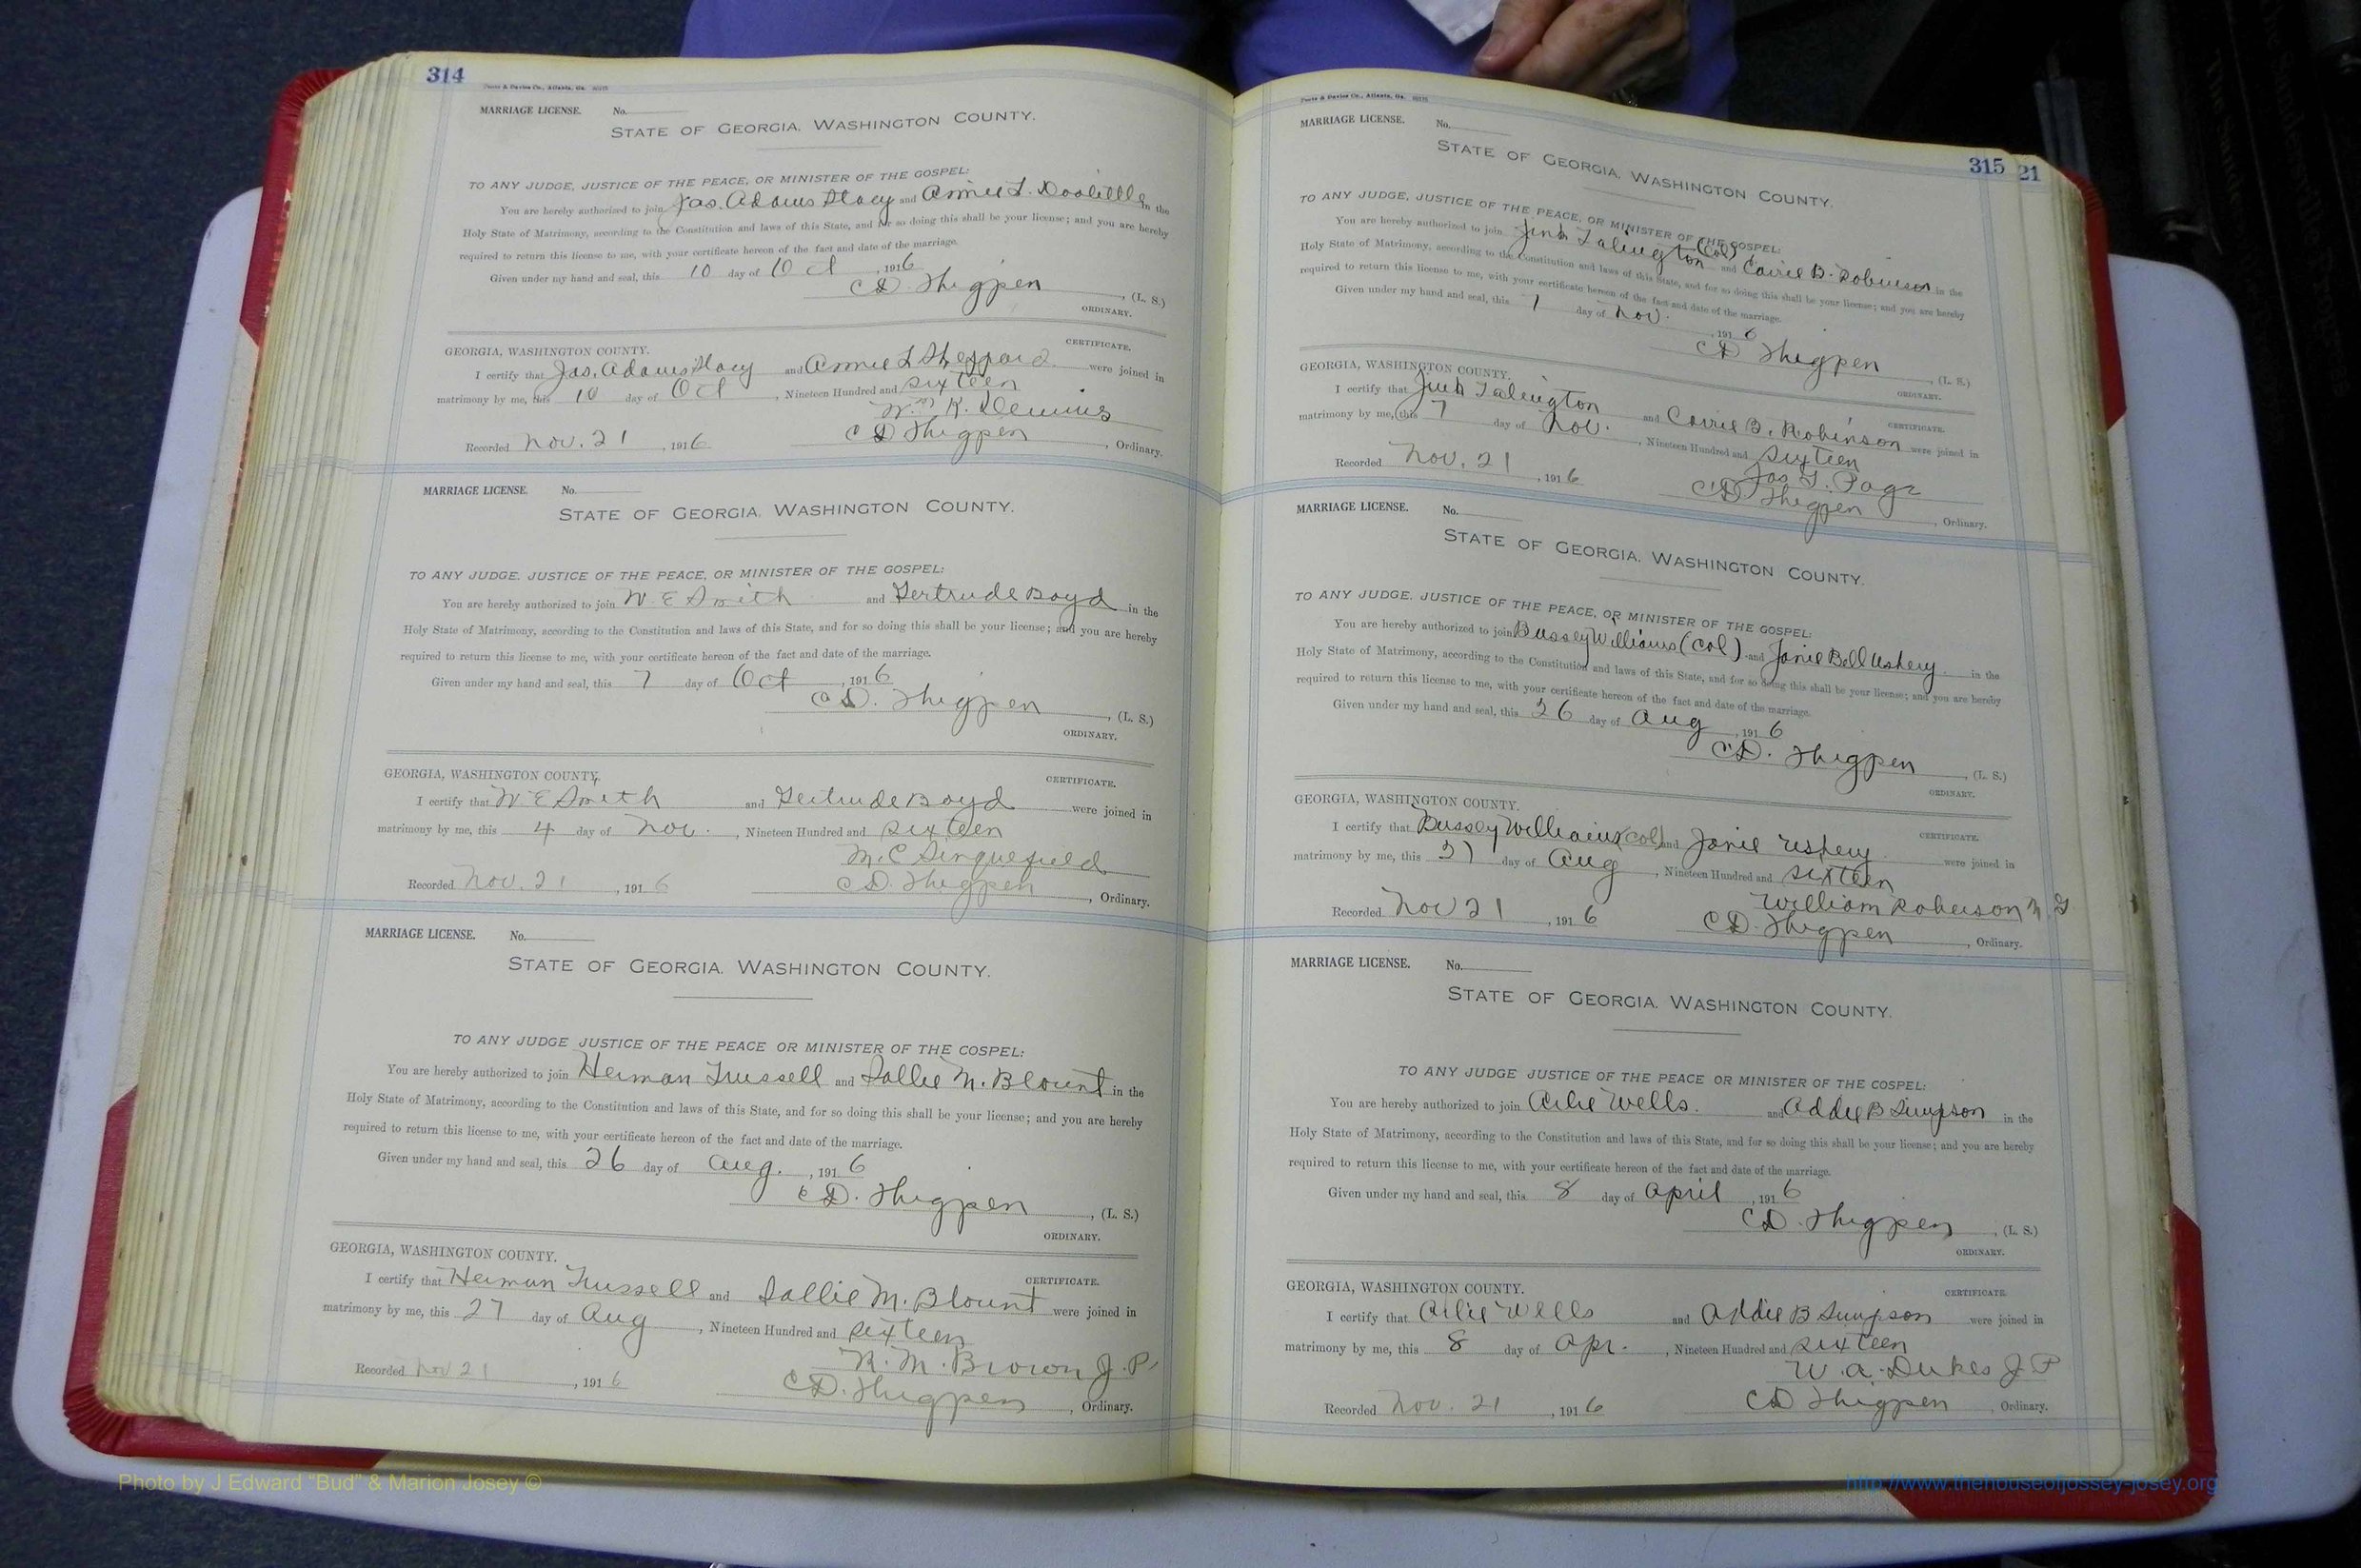 314
MARRIAGE LICENSE. No.
STATE OF GEORGIA, WASHINGTON COUNTY.
TO ANY JUDGE, JUSTICE OF THE PEACE, OR MINISTER OF THE GOSPEL:
You are hereby authorized to join Jas. Adams Stacy and Annie L. Doolittle in the
Holy State of Matrimony, according to the Constitution and laws of this State, and for so doing this shall be your license; and you are hereby
required to return this license to me, with your certificate hereon of the fact and date of the marriage.
Given under my hand and seal, this 10 day of Oct, 1916
CD. Thigpen, (L. S.)
ORDINARY.
CERTIFICATE.
GEORGIA, WASHINGTON COUNTY.
I certify that Jas. Adams Stacy and Annie L Sheppard were joined in
matrimony by me, this 10 day of Oct, Nineteen Hundred and sixteen
K.
Recorded Nov. 21, 1916 CD Thigpen, Ordinary.
MARRIAGE LICENSE. No.
STATE OF GEORGIA, WASHINGTON COUNTY.
TO ANY JUDGE, JUSTICE OF THE PEACE, OR MINISTER OF THE GOSPEL:
You are hereby authorized to join W. E Smith and Gertrude Boyd in the
Holy State of Matrimony, according to the Constitution and laws of this State, and for so doing this shall be your license; and you are hereby
required to return this license to me, with your certificate hereon of the fact and date of the marriage.
Given under my hand and seal, this 7 day of Oct, 1916
CD. Thigpen, (L. S.)
ORDINARY.
GEORGIA, WASHINGTON COUNTY.
CERTIFICATE.
I certify that W. E Smith and Gertrude Boyd were joined in
matrimony by me, this 4 day of Nov., Nineteen Hundred and sixteen
M. C Sinquefield
Recorded Nov. 21, 1916 CD. Thigpen, Ordinary.
MARRIAGE LICENSE. No.
STATE OF GEORGIA, WASHINGTON COUNTY.
TO ANY JUDGE JUSTICE OF THE PEACE OR MINISTER OF THE GOSPEL:
You are hereby authorized to join Herman Trussell and Sallie M. Blount in the
Holy State of Matrimony, according to the Constitution and laws of this State, and for so doing this shall be your license; and you are hereby
required to return this license to me, with your certificate hereon of the fact and date of the marriage.
Given under my hand and seal, this 26 day of Aug., 1916
CD. Thigpen, (L. S.)
ORDINARY.
GEORGIA, WASHINGTON COUNTY.
CERTIFICATE.
I certify that Herman Trussell and Sallie M. Blount were joined in
matrimony by me, this 27 day of Aug, Nineteen Hundred and sixteen
R. M. Brown J. P.
Recorded Nov 21, 1916 CD. Thigpen, Ordinary.
315 21
MARRIAGE LICENSE. No.
STATE OF GEORGIA, WASHINGTON COUNTY.
TO ANY JUDGE, JUSTICE OF THE PEACE, OR MINISTER OF THE GOSPEL:
You are hereby authorized to join Talington (Col) and Carrie B. Robinson in the
Holy State of Matrimony, according to the Constitution and laws of this State, and for so doing this shall be your license; and you are hereby
required to return this license to me, with your certificate hereon of the fact and date of the marriage.
Given under my hand and seal, this 7 day of Nov., 1916
CD Thigpen, (L. S.)
ORDINARY.
GEORGIA, WASHINGTON COUNTY.
CERTIFICATE.
I certify that Talington and Carrie B. Robinson were joined in
matrimony by me, this 7 day of Nov., Nineteen Hundred and sixteen
Jas T. Page
Recorded Nov. 21, 1916 CD Thigpen, Ordinary.
MARRIAGE LICENSE. No.
STATE OF GEORGIA, WASHINGTON COUNTY.
TO ANY JUDGE, JUSTICE OF THE PEACE, OR MINISTER OF THE GOSPEL:
You are hereby authorized to join Bussey Williams (Col) and Janie Bell Ushery in the
Holy State of Matrimony, according to the Constitution and laws of this State, and for so doing this shall be your license; and you are hereby
required to return this license to me, with your certificate hereon of the fact and date of the marriage.
Given under my hand and seal, this 26 day of Aug, 1916
CD. Thigpen, (L. S.)
ORDINARY.
GEORGIA, WASHINGTON COUNTY.
CERTIFICATE.
I certify that Bussey Williams (Col) and Janie Ushery were joined in
matrimony by me, this 27 day of Aug, Nineteen Hundred and sixteen
William Roberson M G
Recorded Nov 21, 1916 CD. Thigpen, Ordinary.
MARRIAGE LICENSE. No.
STATE OF GEORGIA, WASHINGTON COUNTY.
TO ANY JUDGE JUSTICE OF THE PEACE OR MINISTER OF THE GOSPEL:
You are hereby authorized to join Arlie Wells. and Addie B Simpson in the
Holy State of Matrimony, according to the Constitution and laws of this State, and for so doing this shall be your license; and you are hereby
required to return this license to me, with your certificate hereon of the fact and date of the marriage.
Given under my hand and seal, this 8 day of April, 1916
CD. Thigpen, (L. S.)
ORDINARY.
GEORGIA, WASHINGTON COUNTY.
CERTIFICATE.
I certify that Arlie Wells and Addie B Simpson were joined in
matrimony by me, this 8 day of Apr., Nineteen Hundred and sixteen
W. A. Dukes J P
Recorded Nov. 21, 1916 CD Thigpen, Ordinary.
Photo by J Edward "Bud" & Marion Josey ©
http://www.thehouseofjossey-josey.org